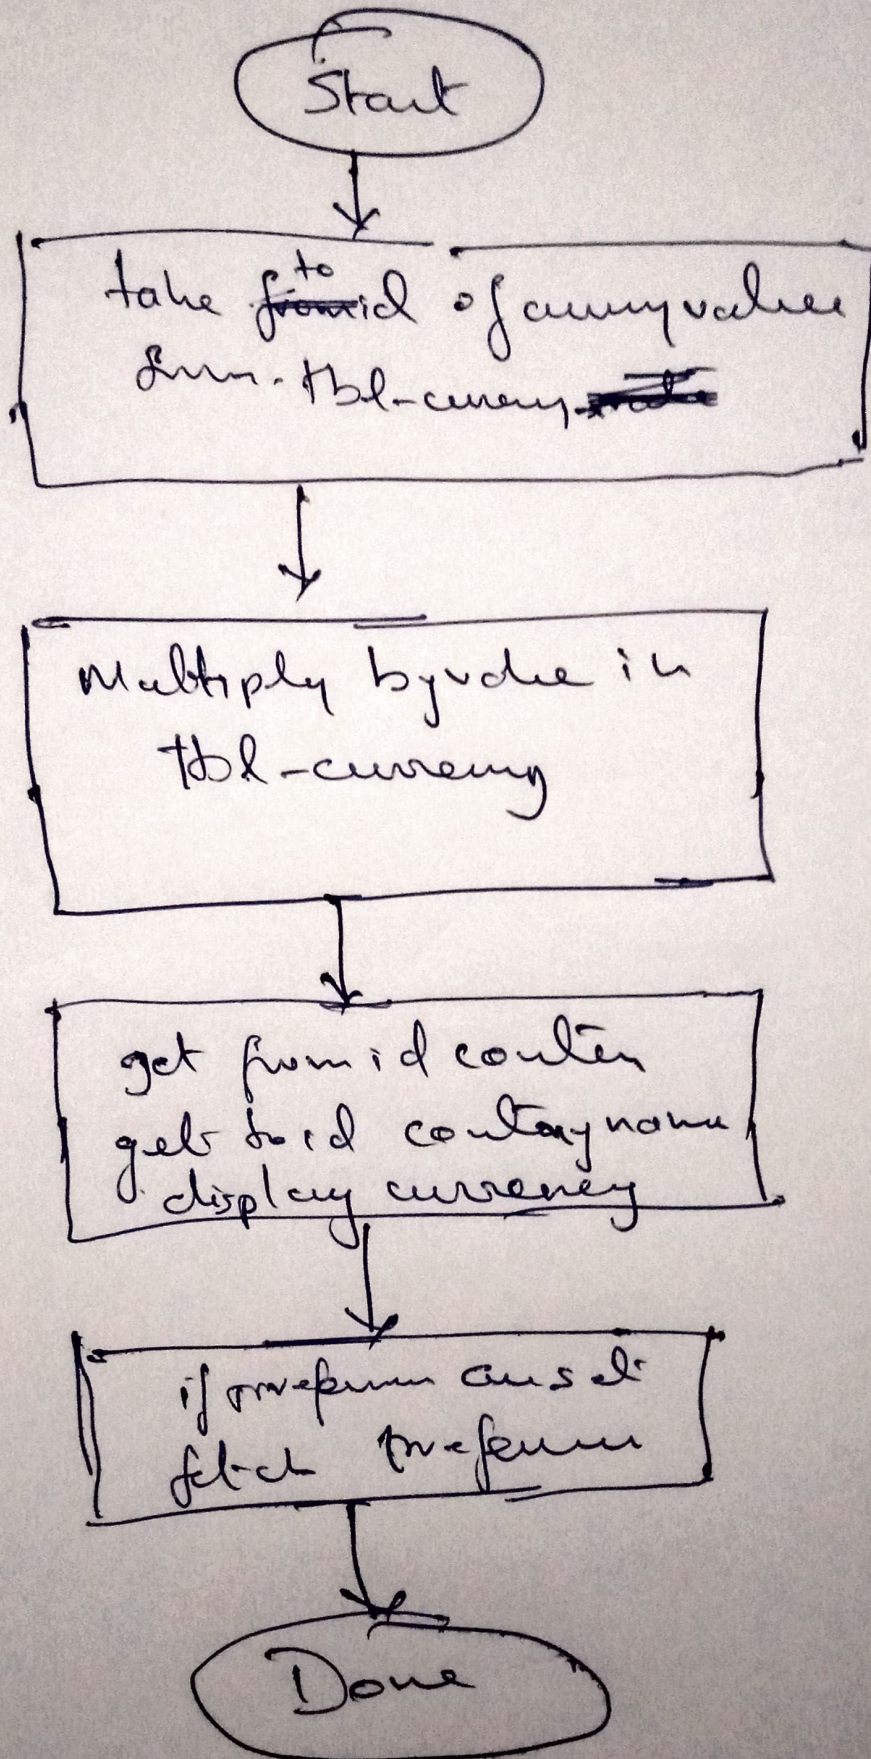 Start
take to id of currency value
from tbl-currency
Multiply by value in
tbl-currency
get from id
get to id country name
display currency
if are set
fetch
Done